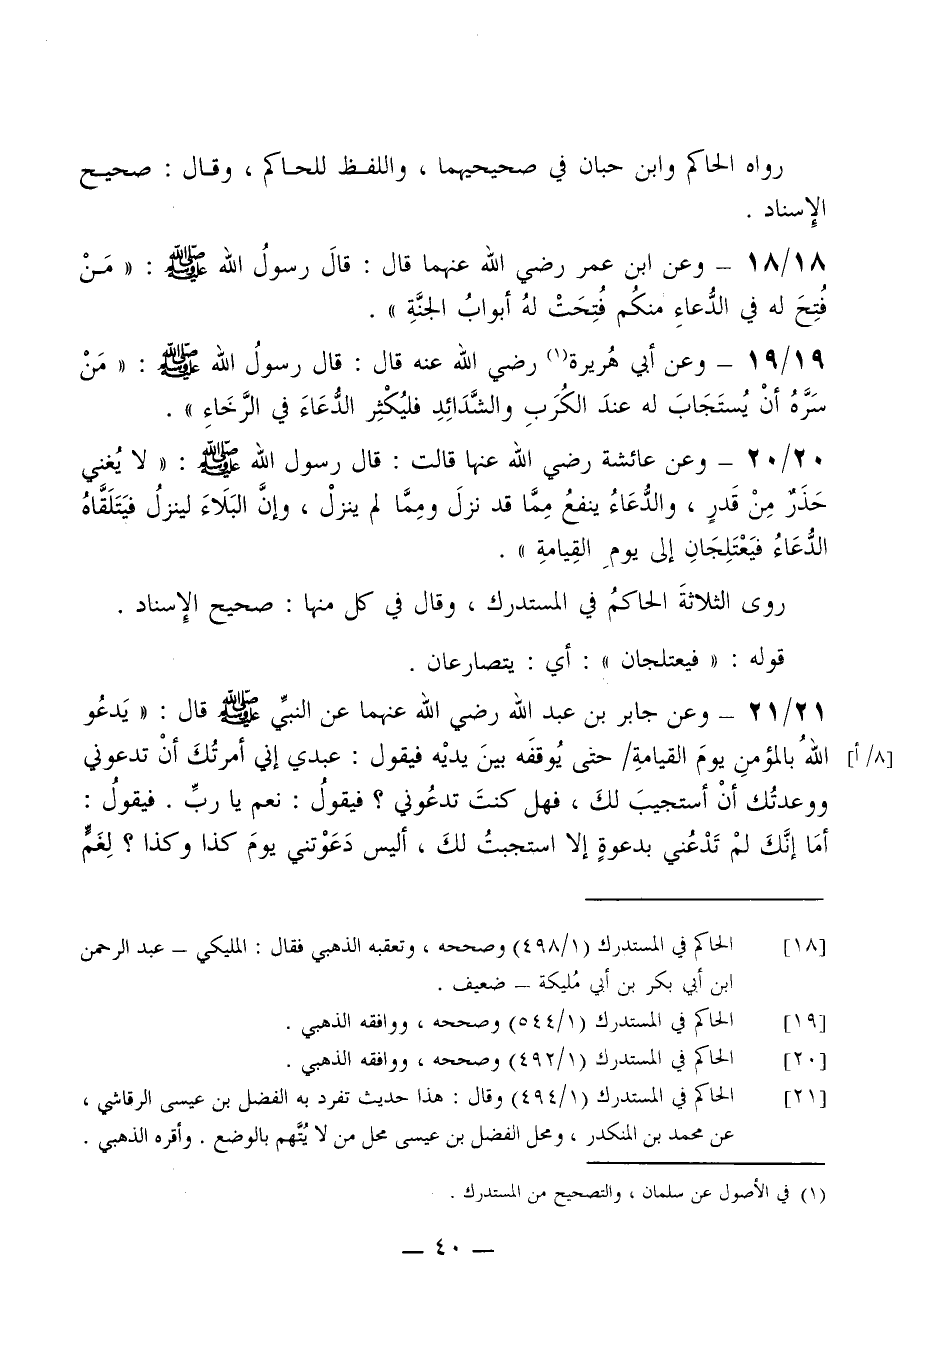 رواه الحاكم وابن حبان في صحيحيهما ، واللفظ للحاكم ، وقال : صحيح
الإسناد .
١٨/١٨ ــ وعن ابن عمر رضي الله عنهما قال : قالَ رسولُ الله ﷺ : « مَنْ
فُتِحَ له في الدُّعاءِ منكُم فُتِحَتْ لهُ أبوابُ الجنَّةِ » .
١٩/١٩ ــ وعن أبي هُريرة(١) رضي الله عنه قال : قال رسولُ الله ﷺ : « مَنْ
سَرَّهُ أنْ يُستَجَابَ له عندَ الكُرَبِ والشَّدائِدِ فليُكْثِر الدُّعَاءَ في الرَّخَاءِ » .
٢٠/٢٠ ــ وعن عائشة رضي الله عنها قالت : قال رسول الله ﷺ : « لا يُغني
حَذَرٌ مِنْ قَدرٍ ، والدُّعَاءُ ينفعُ مِمَّا قد نزلَ ومِمَّا لم ينزلْ ، وإنَّ البَلَاءَ لينزلُ فيَتَلَقَّاهُ
الدُّعَاءُ فيَعْتَلِجَانِ إلى يومِ القِيامةِ » .
روى الثلاثةَ الحاكمُ في المستدرك ، وقال في كل منها : صحيح الإسناد .
قوله : « فيعتلجان » : أي : يتصارعان .
٢١/٢١ ــ وعن جابر بن عبد الله رضي الله عنهما عن النبيِّ ﷺ قال : « يَدعُو
اللهُ بالمؤمنِ يومَ القيامةِ/ حتى يُوقفَه بينَ يديْه فيقول : عبدي إني أمرتُكَ أنْ تدعوني [٨/أ]
ووعدتُك أنْ أستجيبَ لكَ ، فهل كنتَ تدعُوني ؟ فيقولُ : نعم يا ربِّ . فيقولُ :
أمَا إنَّكَ لمْ تَدْعُني بدعوةٍ إلا استجبتُ لكَ ، أليس دَعَوْتني يومَ كذا وكذا ؟ لِغَمٍّ
[١٨] الحاكم في المستدرك (٤٩٨/١) وصححه ، وتعقبه الذهبي فقال : المليكي ــ عبد الرحمن
ابن أبي بكر بن أبي مُليكة ــ ضعيف .
[١٩] الحاكم في المستدرك (٥٤٤/١) وصححه ، ووافقه الذهبي .
[٢٠] الحاكم في المستدرك (٤٩٢/١) وصححه ، ووافقه الذهبي .
[٢١] الحاكم في المستدرك (٤٩٤/١) وقال : هذا حديث تفرد به الفضل بن عيسى الرقاشي ،
عن محمد بن المنكدر ، ومحل الفضل بن عيسى محل من لا يُتَّهم بالوضع . وأقره الذهبي .
(١) في الأصول عن سلمان ، والتصحيح من المستدرك .
ــ ٤٠ ــ